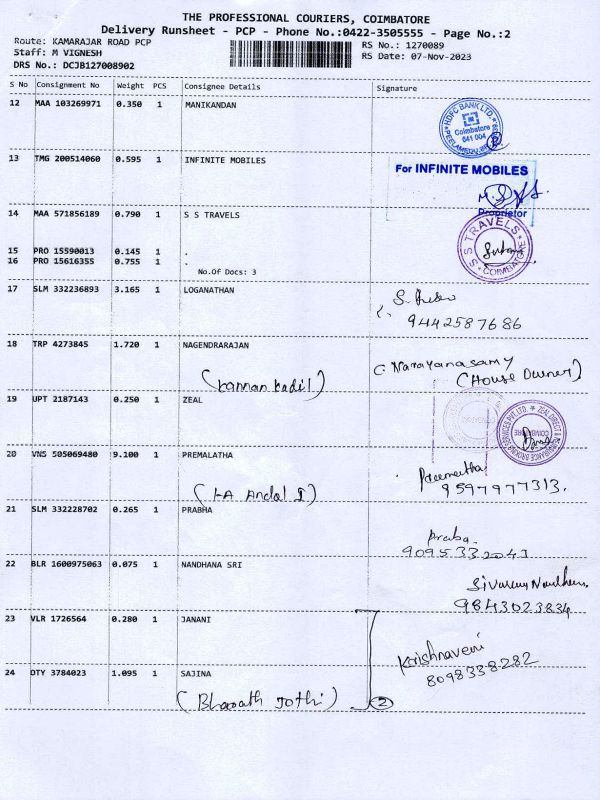 THE PROFESSIONAL COURIERS, COIMBATORE
Delivery Runsheet - PCP - Phone No.:0422-3505555 - Page No.:2
Route: KAMARAJAR ROAD PCP
RS No.: 1270089
Staff: M VIGNESH
RS Date: 07-Nov-2023
DRS No.: DCJB127008902
S No Consignment No Weight PCS Consignee Details Signature
12 MAA 103269971 0.350 1 MANIKANDAN
HDFC BANK LTD
Coimbatore
641 004
13 TMG 200514060 0.595 1 INFINITE MOBILES
For INFINITE MOBILES
Proprietor
14 MAA 571856189 0.790 1 S S TRAVELS
S S TRAVELS
COIMBATORE
15 PRO 15590013 0.145 1 .
16 PRO 15616355 0.755 1 .
No.Of Docs: 3
17 SLM 332236893 3.165 1 LOGANATHAN
9442587686
18 TRP 4273845 1.720 1 NAGENDRARAJAN
C Narayanasamy
(House Owner)
(Kannan Kadil)
19 UPT 2187143 0.250 1 ZEAL
20 VNS 505069480 9.100 1 PREMALATHA
9597977313.
21 SLM 332228702 0.265 1 PRABHA
Praba.
9095332043
22 BLR 1600975063 0.075 1 NANDHANA SRI
9843023834
23 VLR 1726564 0.280 1 JANANI
Krishnaveni
8098338282
24 OTY 3784023 1.095 1 SAJINA
(Bharath Jothi)
2